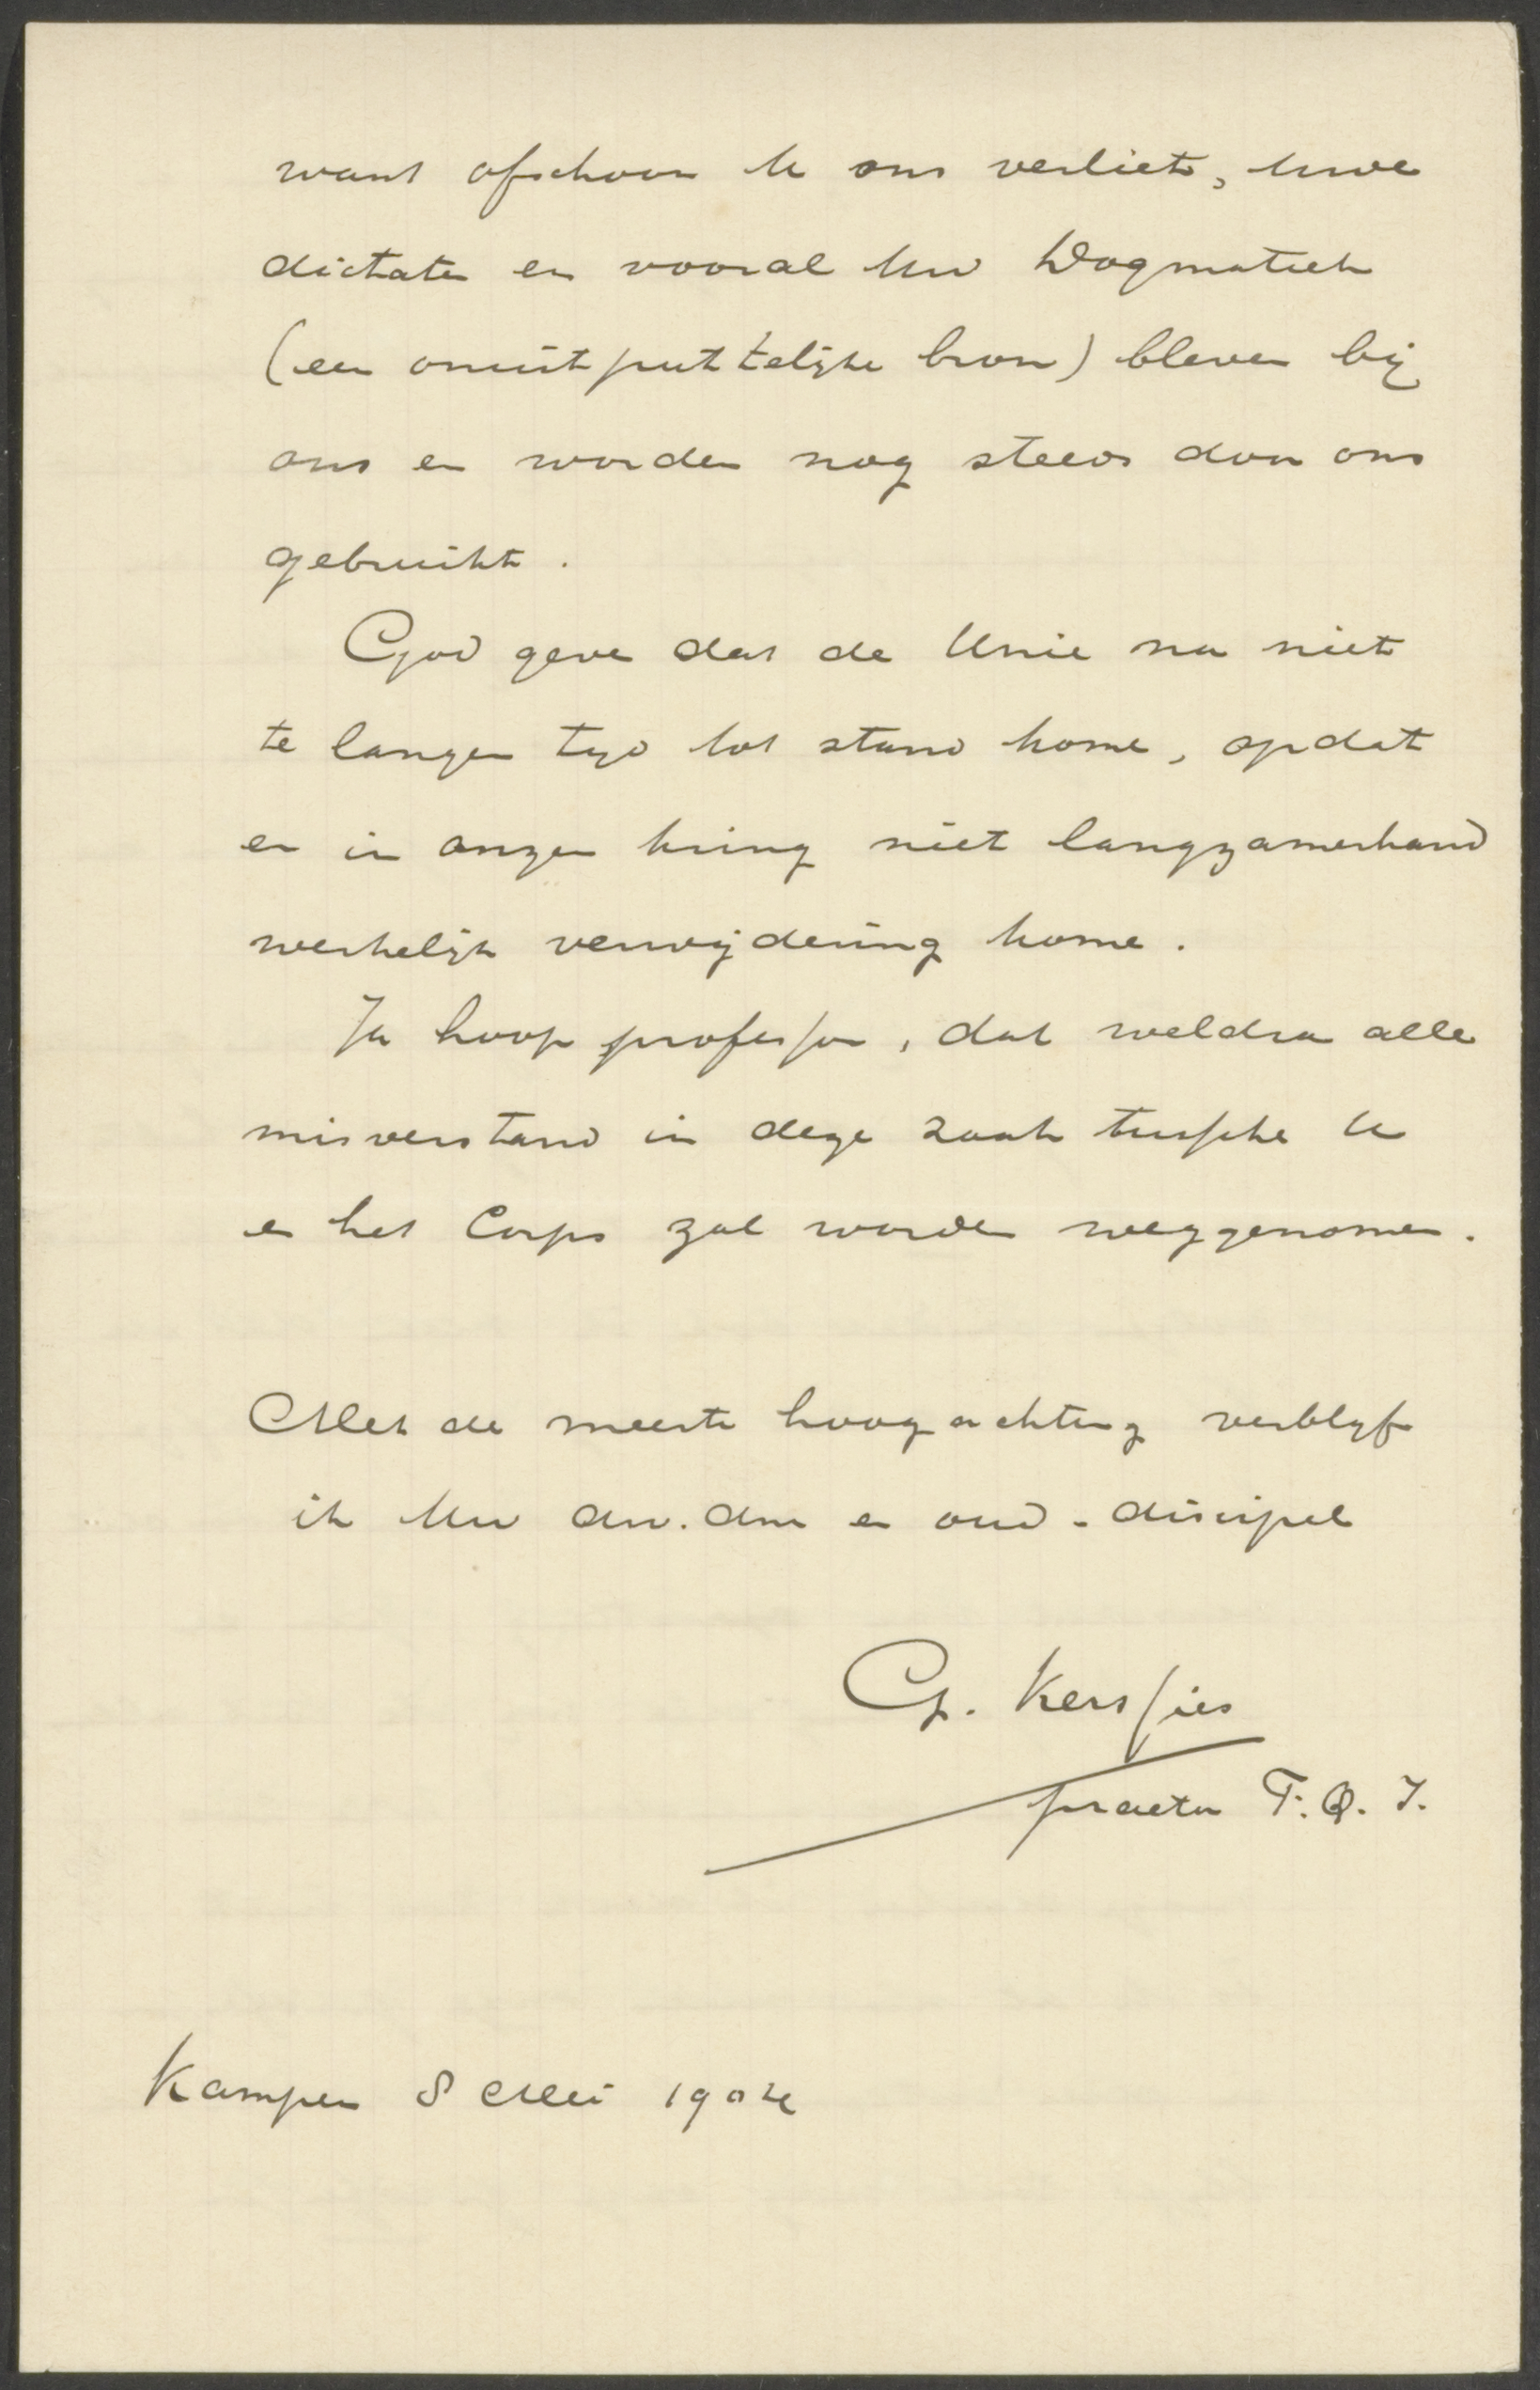 want ofschoon U ons verliet, Uwe
dictaten en vooral Uw Dogmatiek
(een onuitputtelijke bron) bleven bij
ons en worden nog steeds door ons
gebruikt.
God geve dat de Unie na niet
te langen tijd tot stand kome, opdat
er in onzen kring niet langzamerhand
werkelijk verwijdering kome.
Ik hoop professor, dat weldra alle
misverstand in deze zaak tusschen U
en het Corps zal worden weggenomen.
Met de meeste hoogachting verblijf
ik Uw dw. dnr en oud-discipel
G. Kersjies
praetor F. Q. I.
Kampen 8 Mei 1904